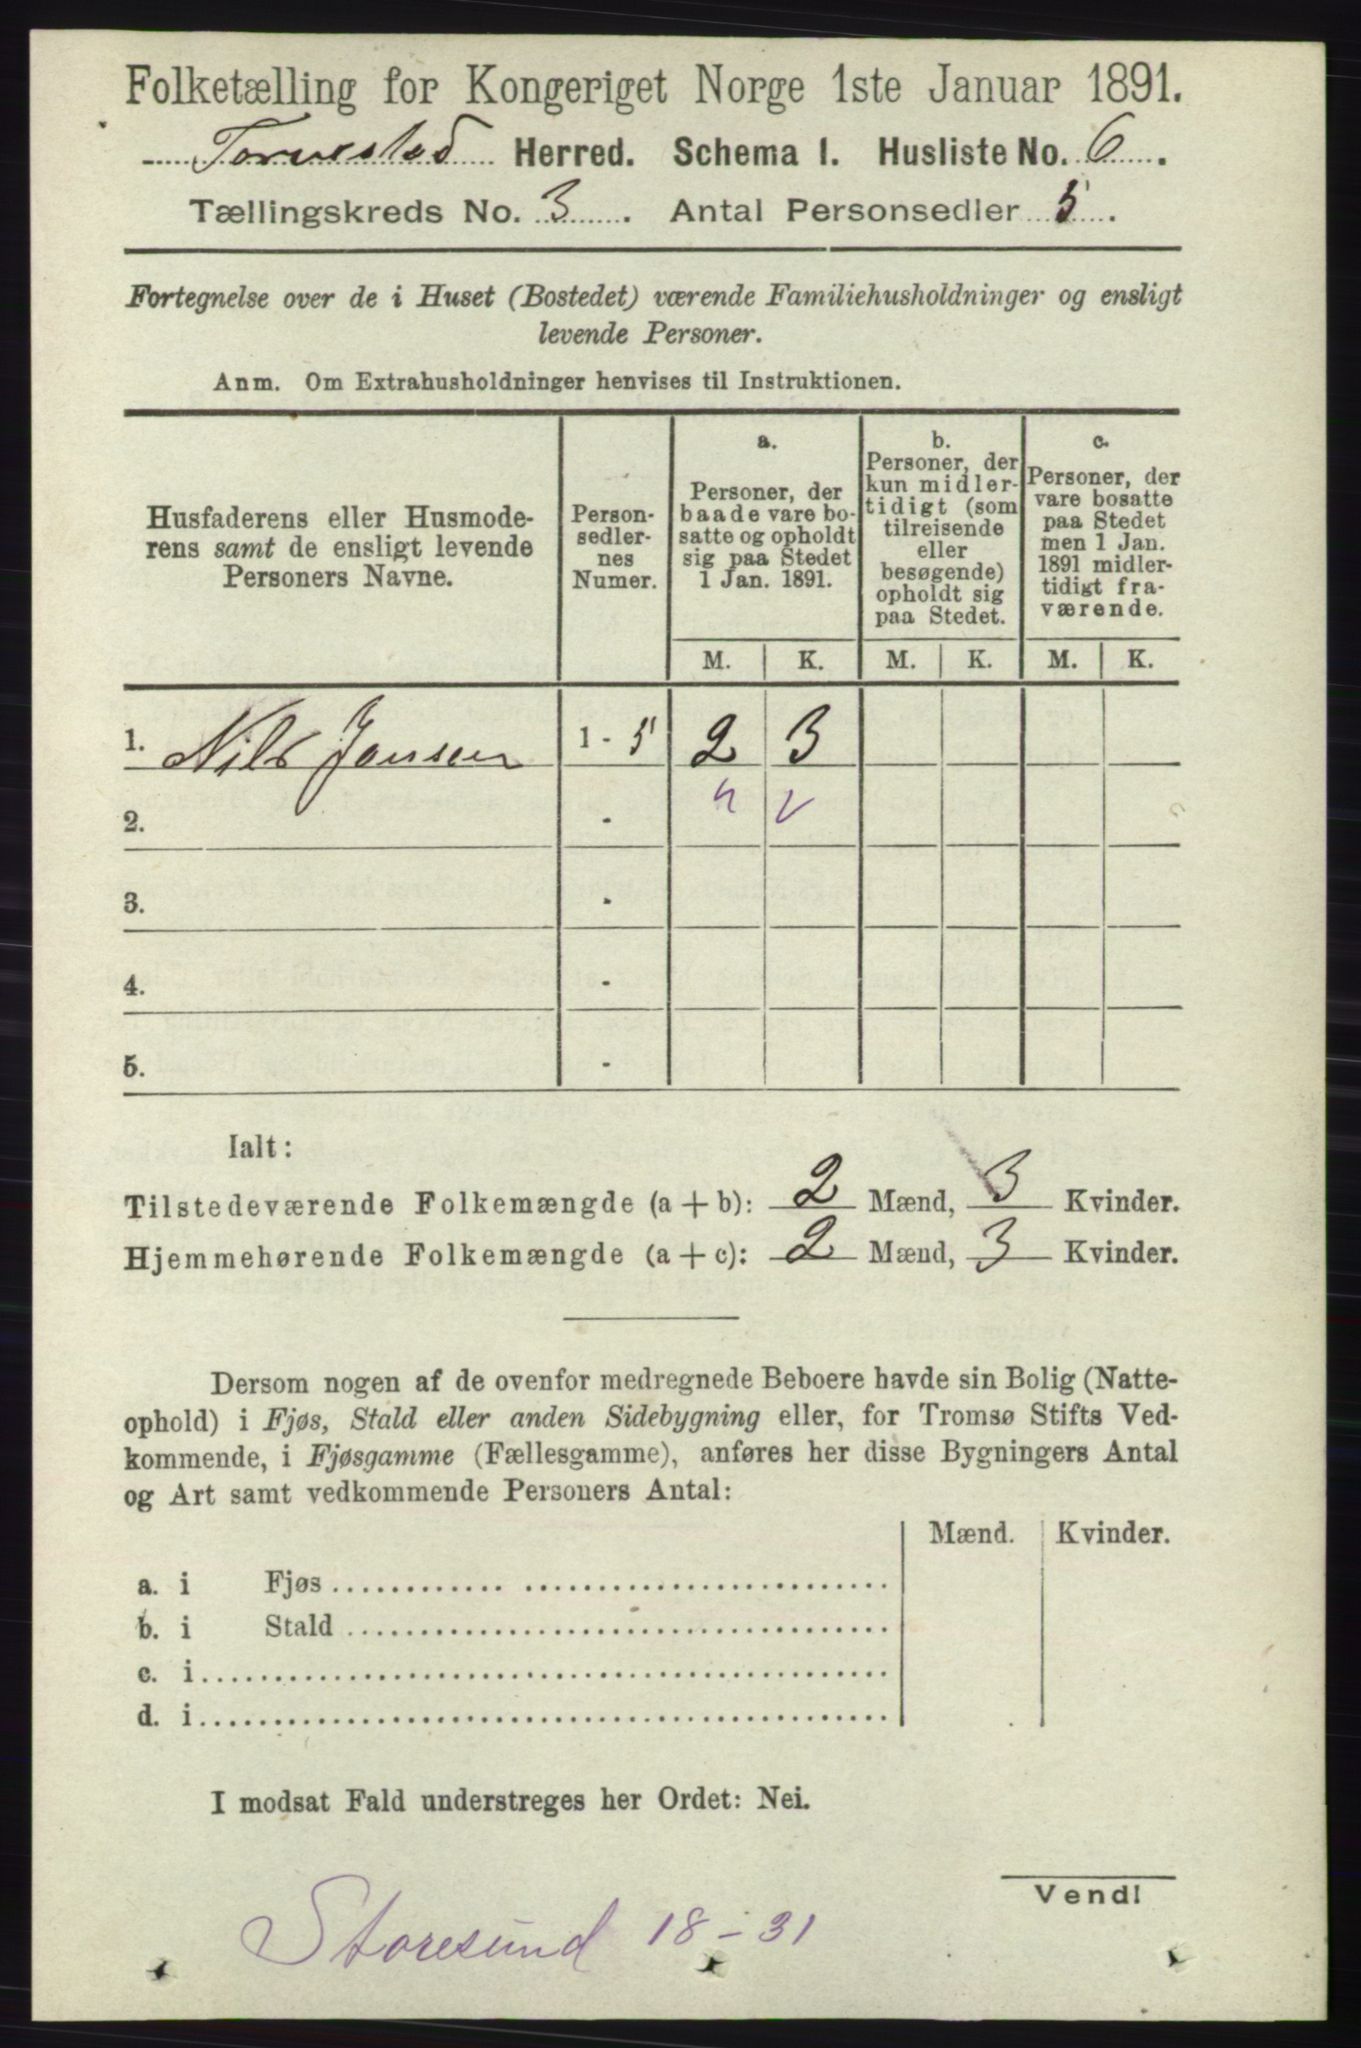 Folketælling for Kongeriget Norge 1ste Januar 1891.
Torvestad Herred. Schema I. Husliste No. 6.
Tællingskreds No. 3. Antal Personsedler 5.
Fortegnelse over de i Huset (Bostedet) værende Familiehusholdninger og ensligt
levende Personer.
Anm. Om Extrahusholdninger henvises til Instruktionen.
Husfaderens eller Husmode-
rens samt de ensligt levende
Personers Navne.
Person-
sedler-
nes
Numer.
a.
Personer, der
baade vare bo-
satte og opholdt
sig paa Stedet
1 Jan. 1891.
b.
Personer, der
kun midler-
tidigt (som
tilreisende
eller
besøgende)
opholdt sig
paa Stedet.
c.
Personer, der
vare bosatte
paa Stedet
men 1 Jan.
1891 midler-
tidigt fra-
værende.
M. K. M. K. M. K.
1. Nils Jansen 1 - 5 2 3
2. -
3. -
4. -
5. -
Ialt:
Tilstedeværende Folkemængde (a + b): 2 Mænd, 3 Kvinder.
Hjemmehørende Folkemængde (a + c): 2 Mænd, 3 Kvinder.
Dersom nogen af de ovenfor medregnede Beboere havde sin Bolig (Natte-
ophold) i Fjøs, Stald eller anden Sidebygning eller, for Tromsø Stifts Ved-
kommende, i Fjøsgamme (Fællesgamme), anføres her disse Bygningers Antal
og Art samt vedkommende Personers Antal:
Mænd. Kvinder.
a. i Fjøs
b. i Stald
c. i
d. i
I modsat Fald understreges her Ordet: Nei.
Vend!
Storesund 18 - 31